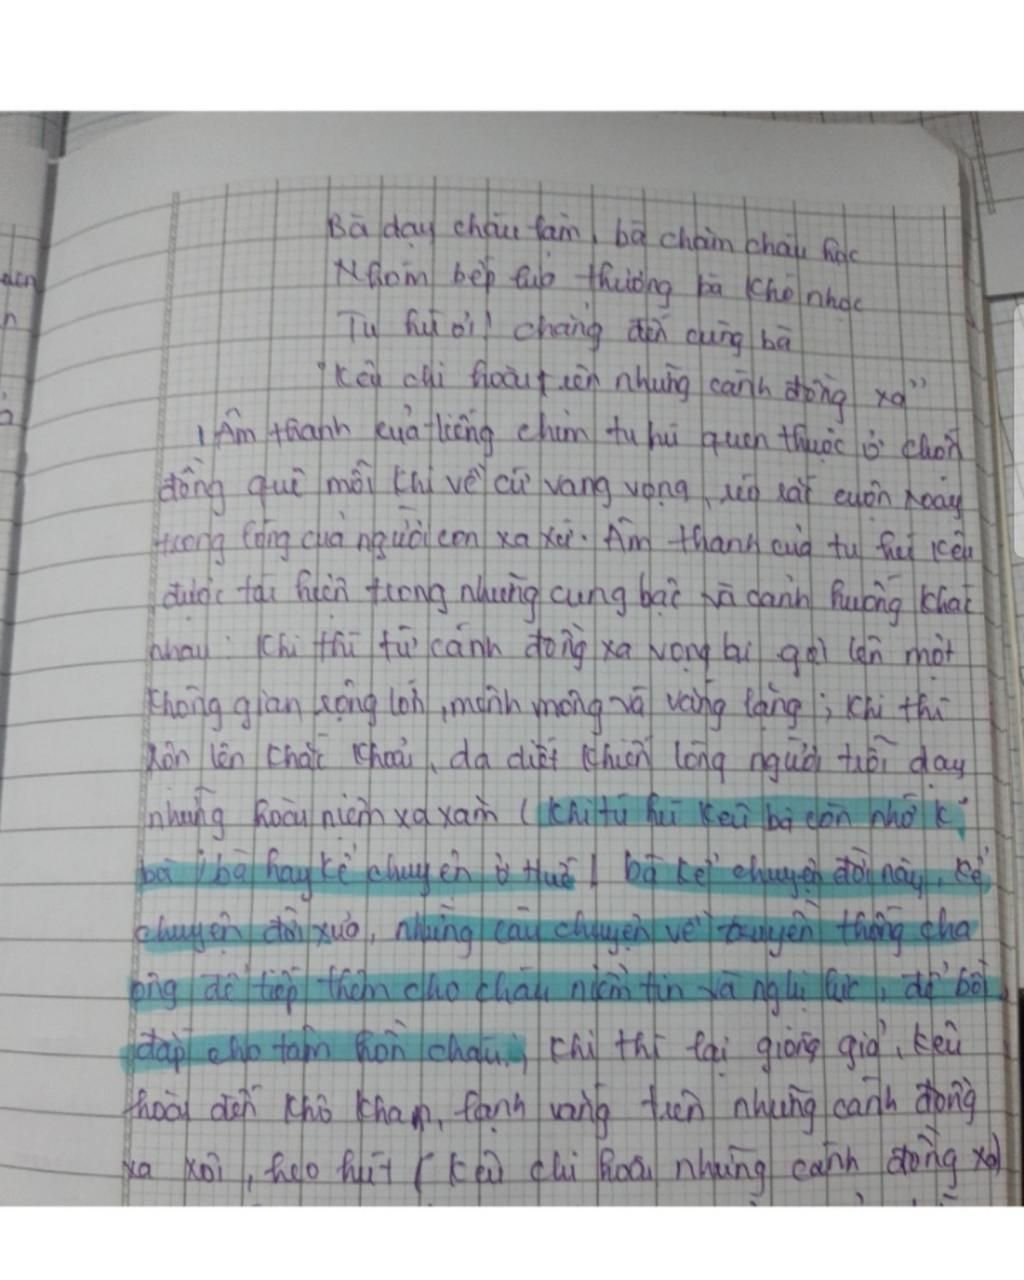 Bà dạy cháu làm, bà chăm cháu học
Nhóm bếp lửa thương bà khó nhọc
Tu hú ơi! chẳng đến cùng bà
"Kêu chi hoài trên những cánh đồng xa"
Âm thanh của tiếng chim tu hú quen thuộc ở chốn
đồng quê mỗi khi về cứ vang vọng, réo rắt cuộn xoáy
trong lòng của người con xa xứ. Âm thanh của tu hú kêu
được tái hiện trong những cung bậc và cảnh huống khác
nhau: Khi thì từ cánh đồng xa vọng lại gợi lên một
không gian rộng lớn, mênh mông và vắng lặng; khi thì
dồn lên khắc khoải, da diết khiến lòng người trỗi dạy
những hoài niệm xa xăm (khi tú hú kêu bà còn nhớ k
bà / bà hay kể chuyện ở Huế / bà kể chuyện đời này, kể
chuyện đời xưa, những câu chuyện về truyền thống cha
ông để tiếp thêm cho cháu niềm tin và nghị lực, để bồi
đắp cho tâm hồn cháu.; khi thì lại gióng giả, kêu
hoài đến khô khan, lạnh vắng trên những cánh đồng
xa xôi, heo hút (kêu chi hoài những cánh đồng xa)
ach
n